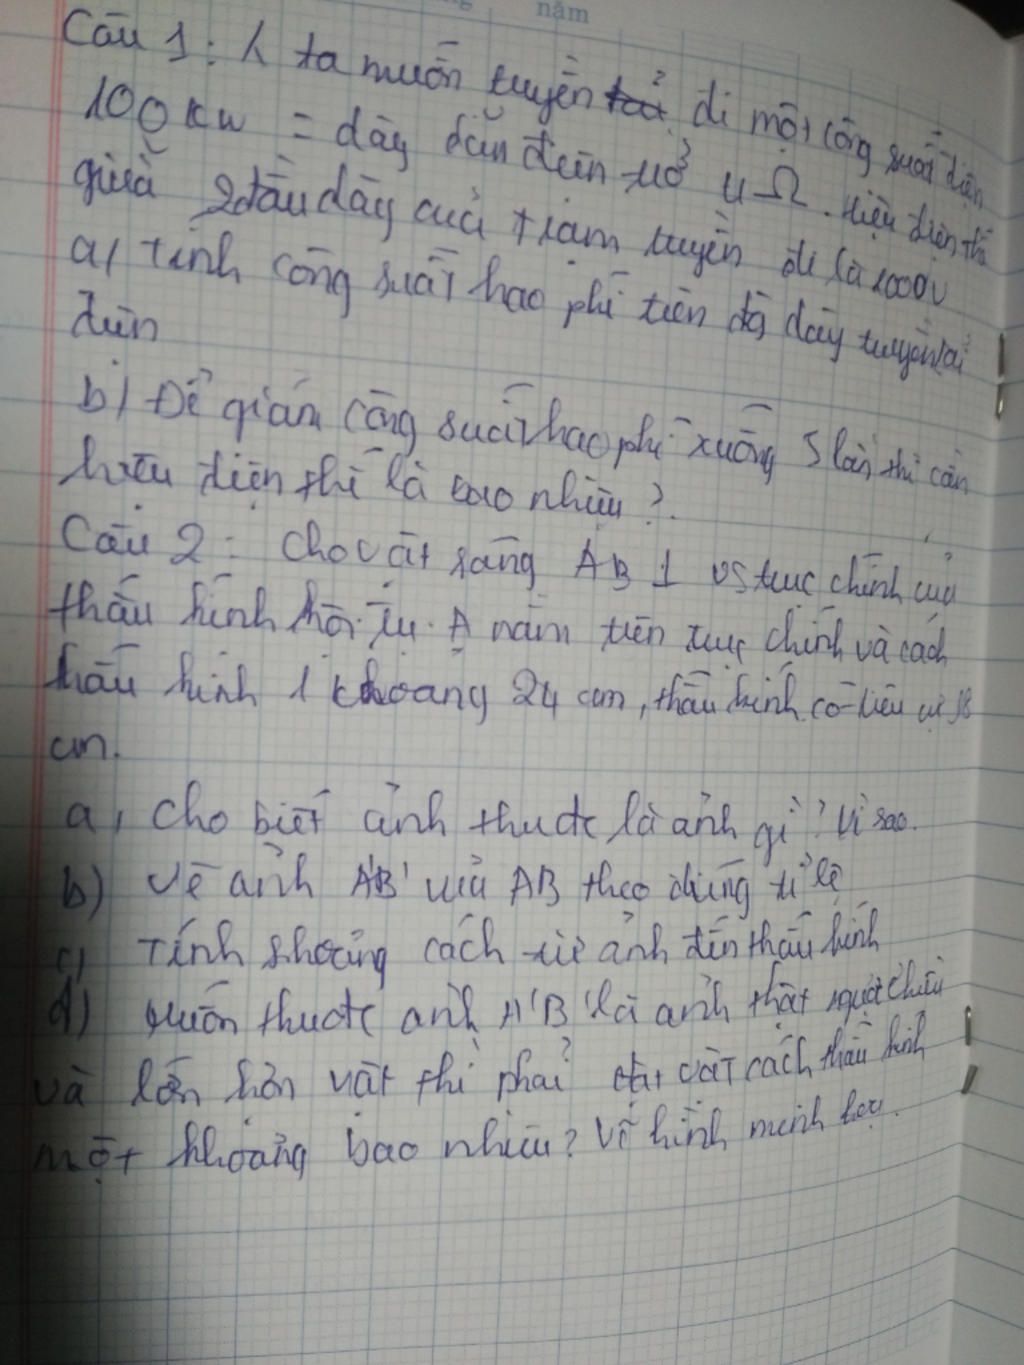 năm
Câu 1: 1 ta muốn truyền đi một công suất điện
100 KW = dây dẫn điện trở 4 Ω. Hiệu điện thế
giữa 2 đầu dây của trạm truyền đi là 1000V
a) Tính công suất hao phí trên đg dây truyền tải
điện
b) Để giảm công suất hao phí xuống 5 lần thì cần
hiệu điện thế là bao nhiêu?
Câu 2: Cho vật sáng AB ⊥ vs trục chính của
thấu kính hội tụ. A nằm trên trục chính và cách
thấu kính 1 khoảng 24 cm, thấu kính có tiêu cự 18
cm.
a, Cho biết ảnh thuđc là ảnh gì? Vì sao.
b) Vẽ ảnh A'B' của AB theo đúng tỉ lệ
c) Tính khoảng cách từ ảnh đến thấu kính
d) Muốn thuđc ảnh A'B' là ảnh thật ngược chiều
và lớn hơn vật thì phải đặt vật cách thấu kính
một khoảng bao nhiêu? Vẽ hình minh họa.